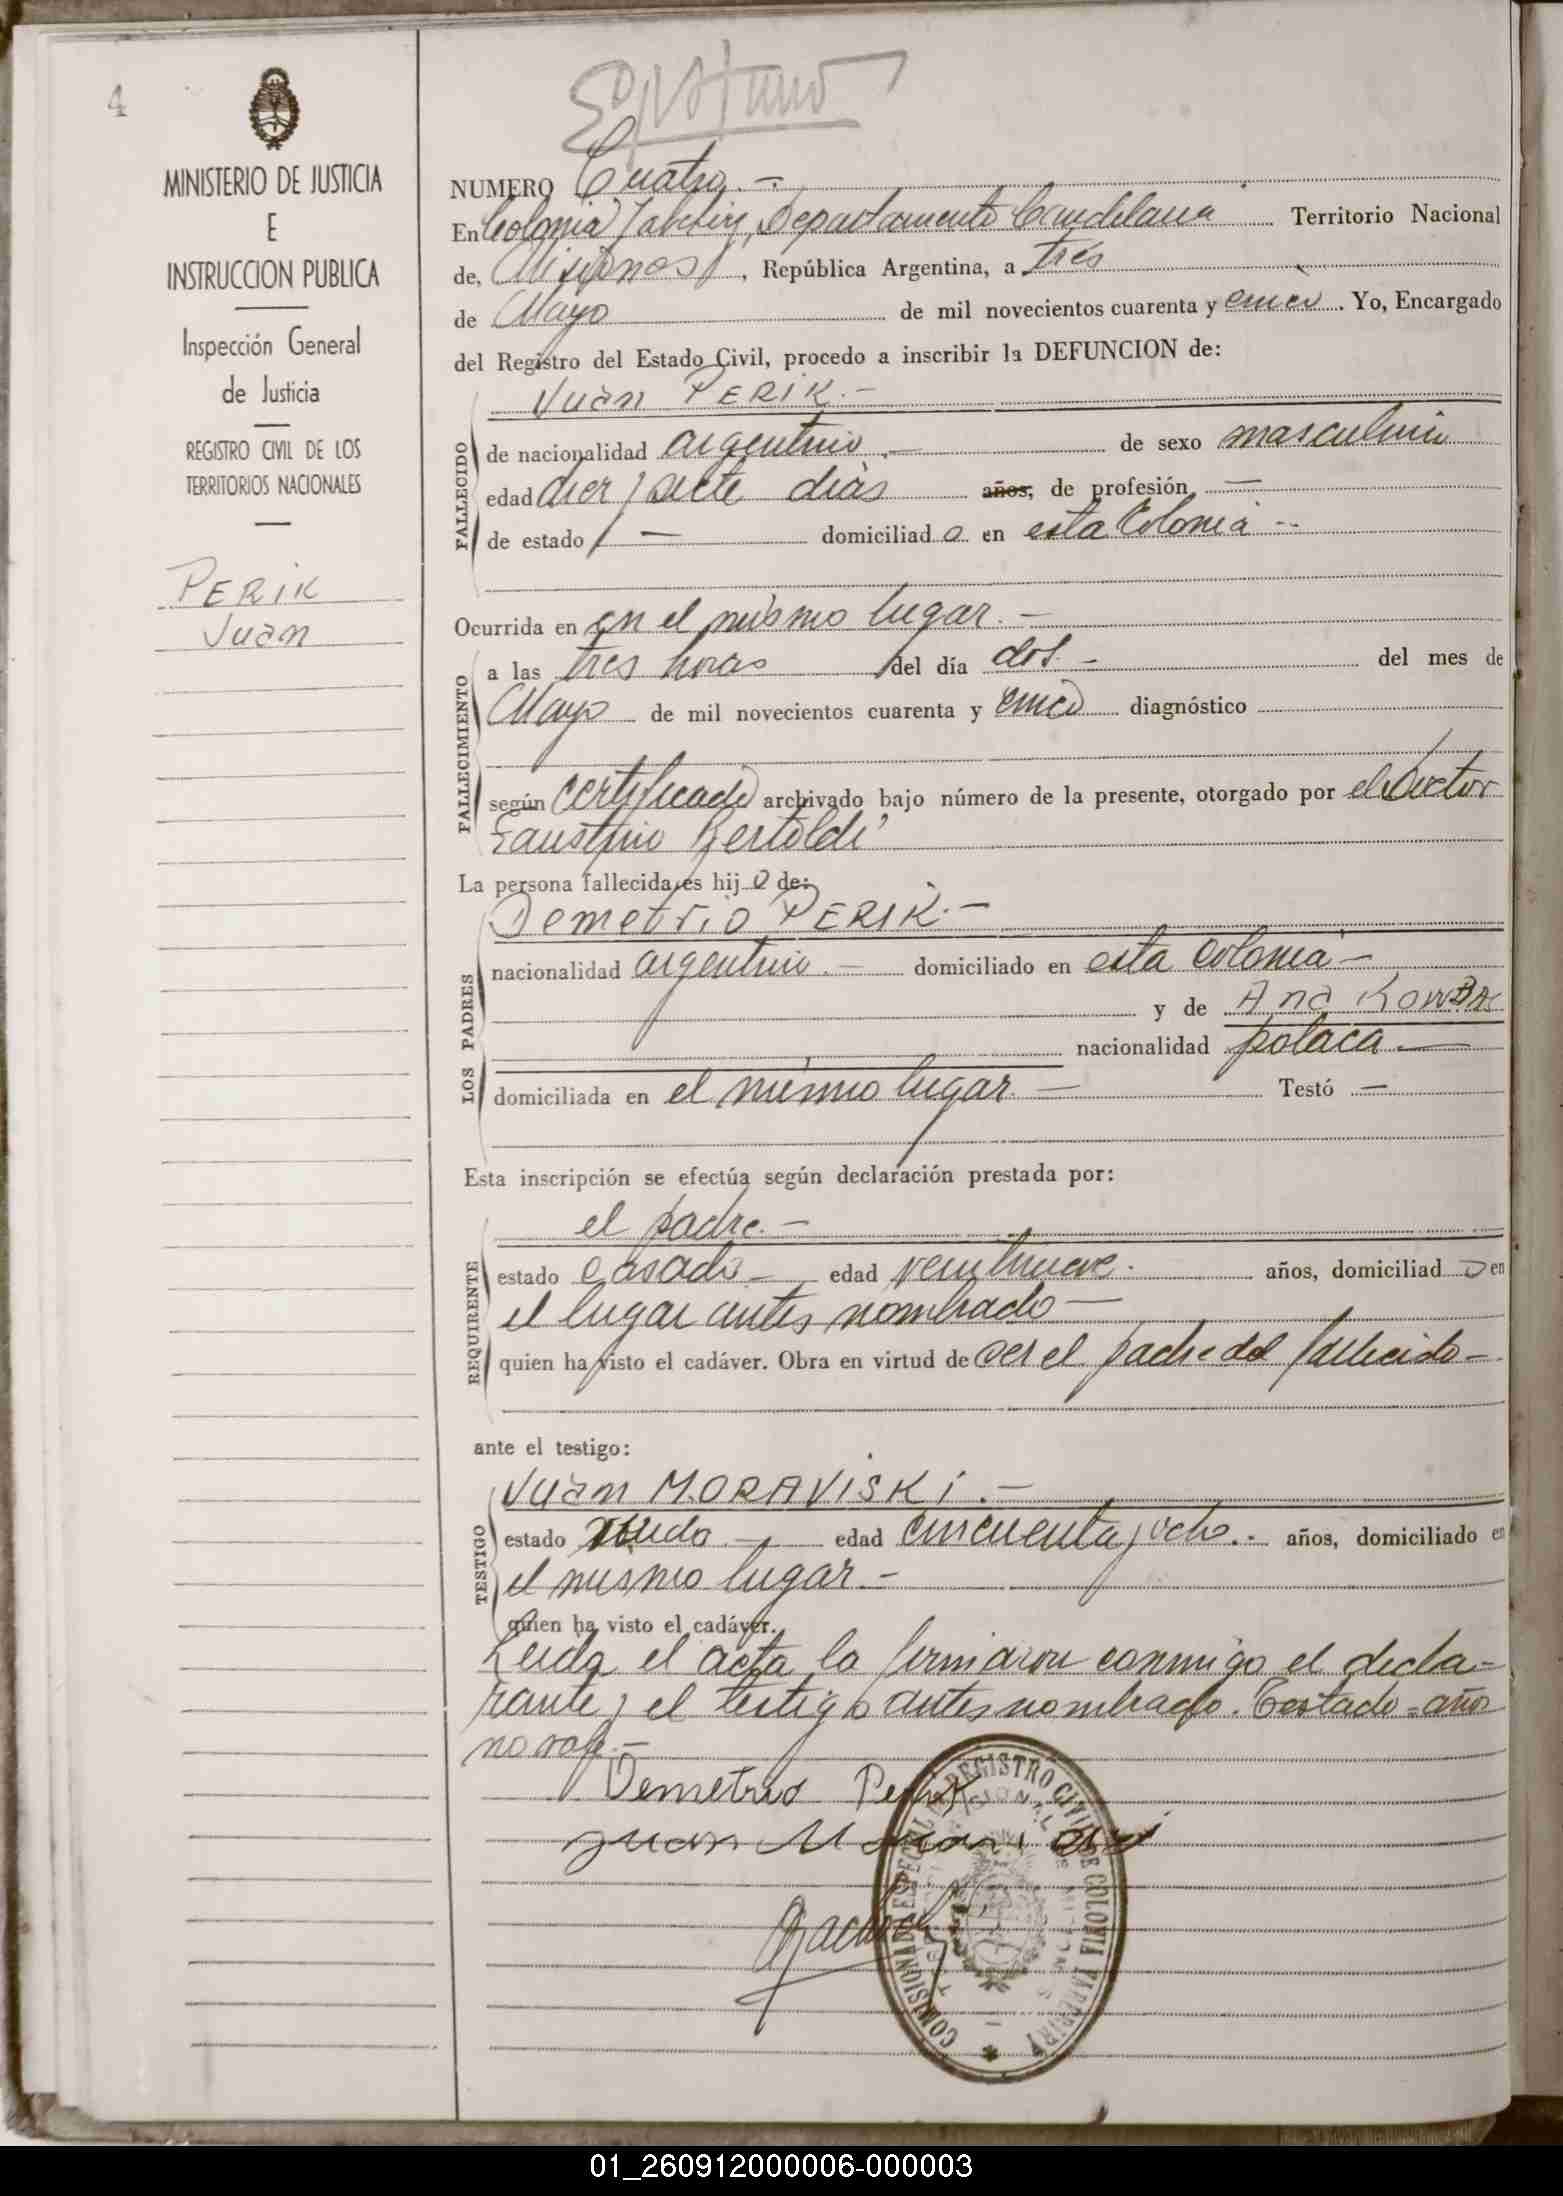 4
MINISTERIO DE JUSTICIA
E
INSTRUCCION PUBLICA
Inspección General
de Justicia
REGISTRO CIVIL DE LOS
TERRITORIOS NACIONALES
PERIK
Juan
NUMERO Cuatro.-
En Colonia Yabebiry, Departamento Candelaria Territorio Nacional
de, Misiones, República Argentina, a tres
de Mayo de mil novecientos cuarenta y cinco. Yo, Encargado
del Registro del Estado Civil, procedo a inscribir la DEFUNCION de:
Juan PERIK.-
FALLECIDO
de nacionalidad argentino.- de sexo masculino
edad diez y siete días años, de profesión —
de estado — domiciliado en esta Colonia --
Ocurrida en en el mismo lugar.-
FALLECIMIENTO
a las tres horas del día dos.- del mes de
Mayo de mil novecientos cuarenta y cinco diagnóstico
según certificado archivado bajo número de la presente, otorgado por el Doctor
Faustino Bertoldi
La persona fallecida es hijo de:
LOS PADRES
Demetrio PERIK.-
nacionalidad argentino.- domiciliado en esta colonia-
y de Ana
nacionalidad polaca —
domiciliada en el mismo lugar.- Testó —
Esta inscripción se efectúa según declaración prestada por:
REQUIRENTE
el padre.-
estado casado - edad veintinueve. años, domiciliado en
el lugar antes nombrado —
quien ha visto el cadáver. Obra en virtud de ser el padre del fallecido-
ante el testigo:
TESTIGO
Juan MORAVISKI.-
estado viudo - edad cincuenta y ocho.- años, domiciliado en
el mismo lugar.-
quien ha visto el cadáver.
Leida el acta la firmaron conmigo el decla-
rante y el testigo antes nombrado. Testado = años
no vale.-
Demetrio Perik
Juan
COMISION ESPECIAL REGISTRO CIVIL DE COLONIA YABEBIRY
01_260912000006-000003